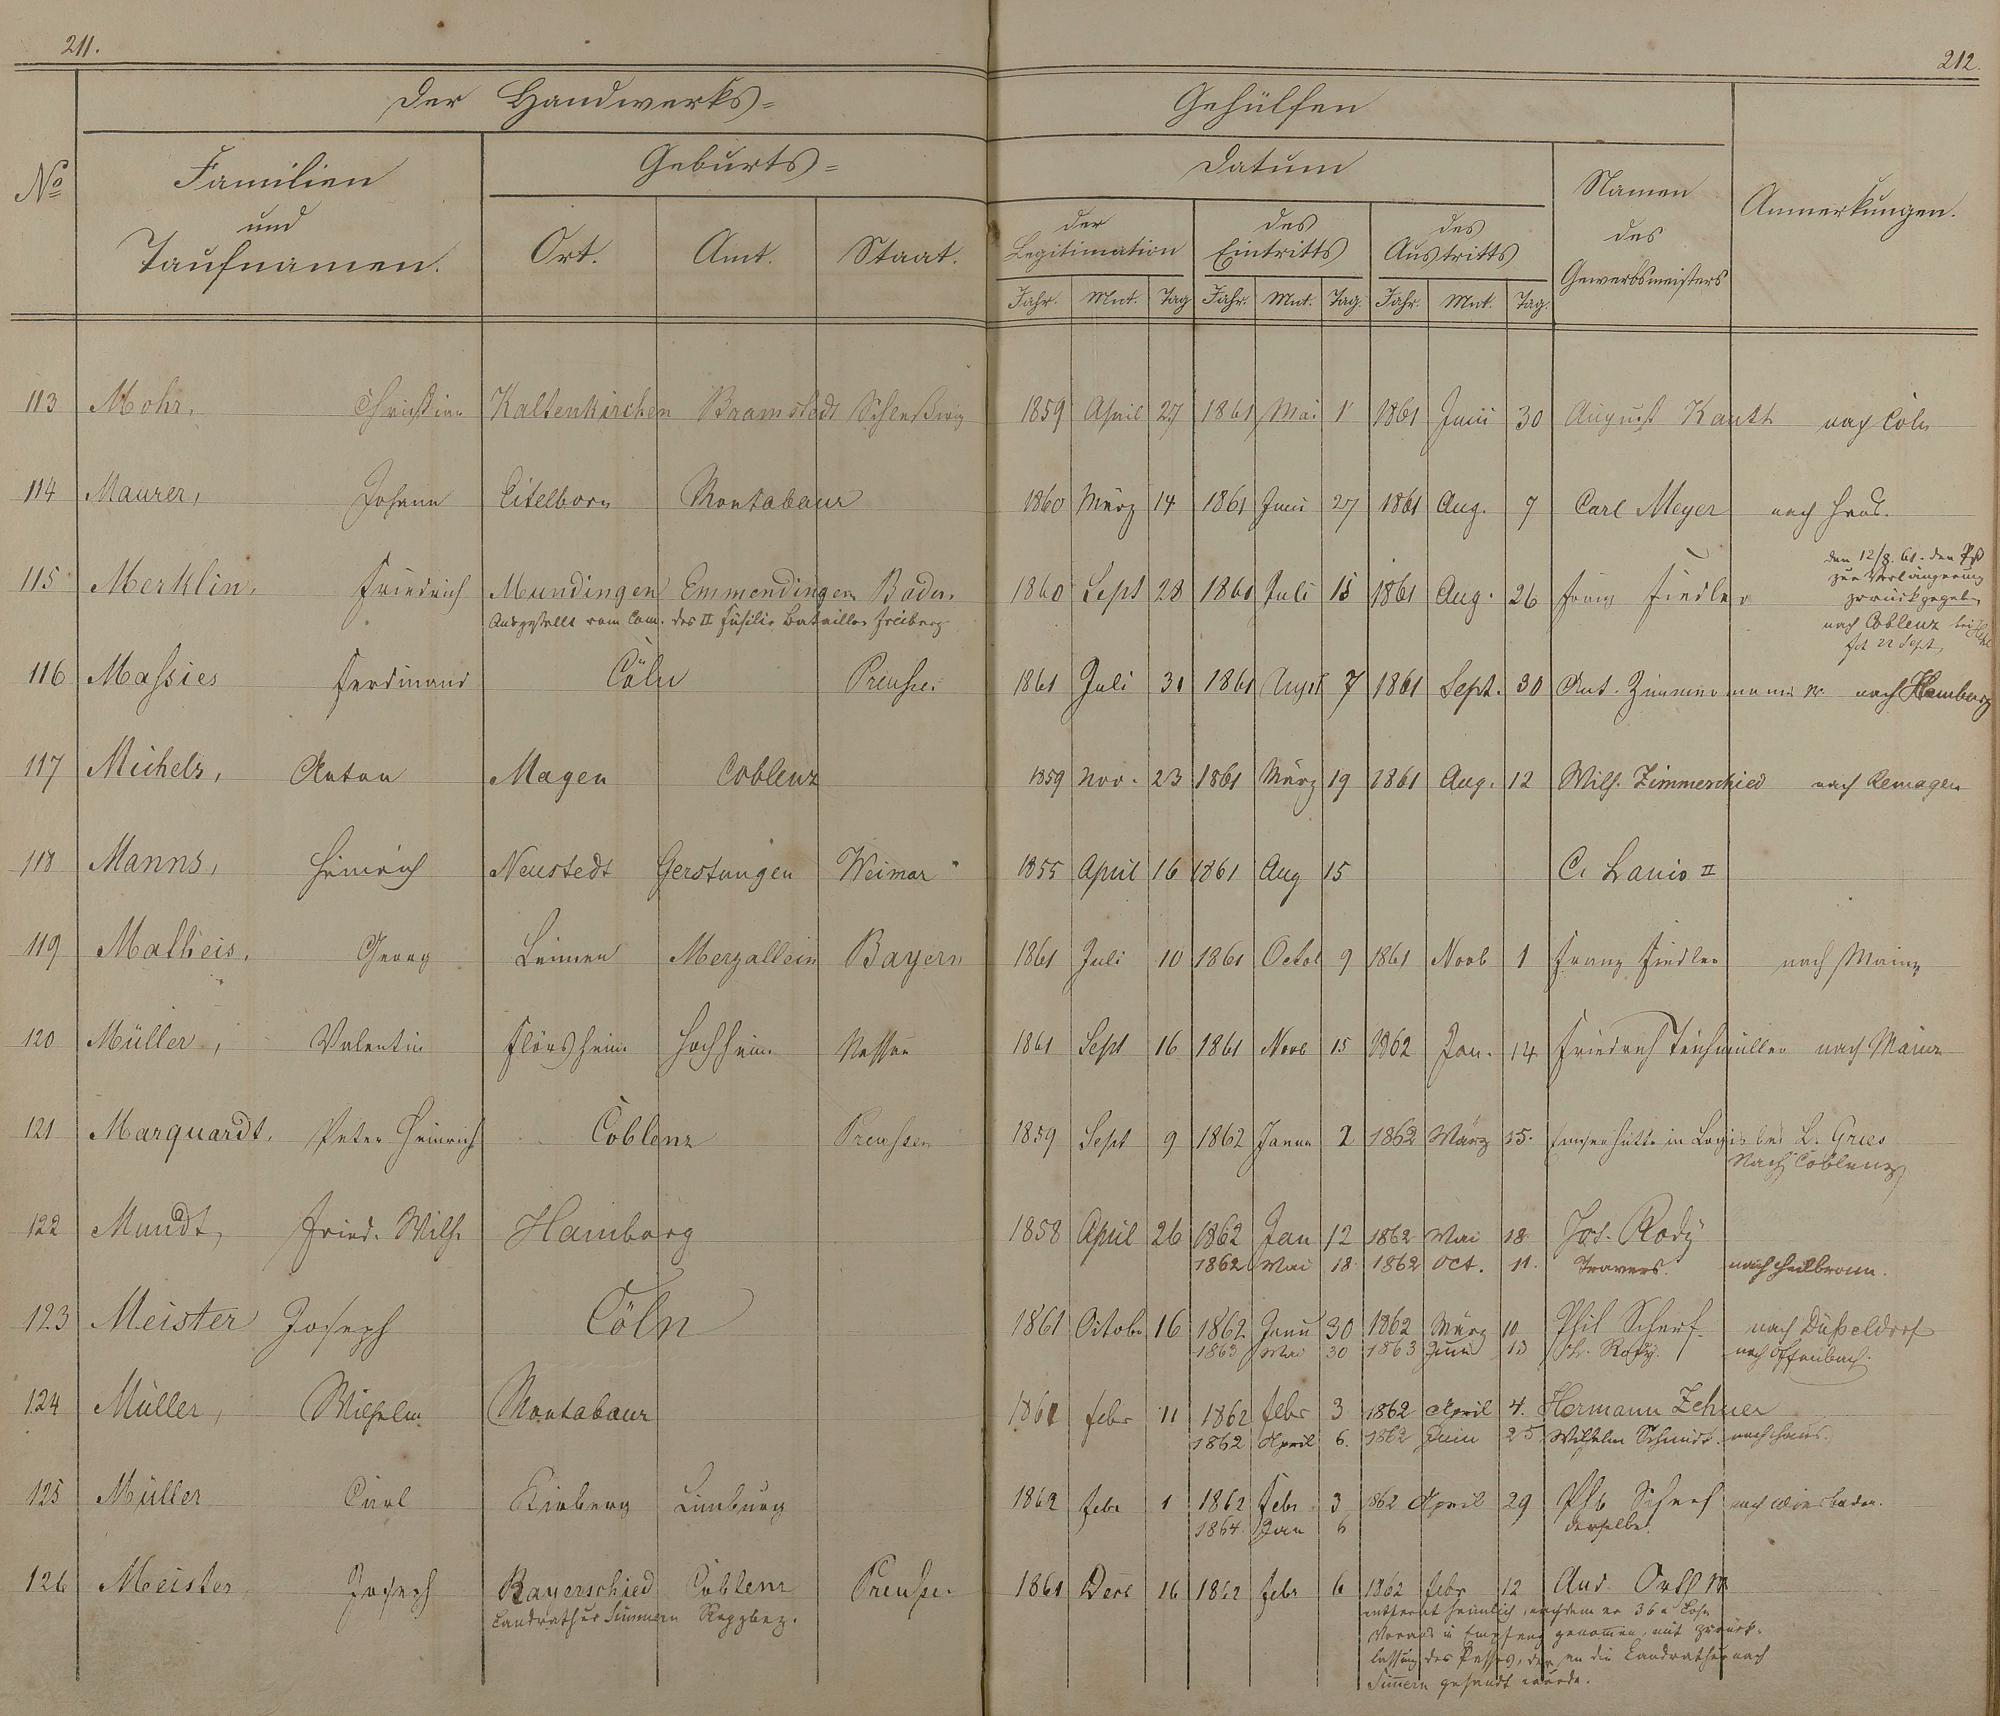 211.
212.
Der Handwerks=
Gehülfen
No
Familien
und
Taufnamen.
Geburts=
Ort.
Amt.
Staat.
Datum
der
Legitimation
des
Eintritts
des
Austritts
Jahr. Mnt. Tag Jahr. Mnt. Tag. Jahr. Mnt. Tag.
Namen
des
Gewerbsmeisters
Anmerkungen.
113 Mohr, Christian Kaltenkirchen Bramstedt Schleßwig 1859 April 27 1861 Mai 1 1861 Juni 30 August Kauth nach Cöln
114 Maurer, Johann Eitelborn Montabaur 1860 März 14 1861 Juni 27 1861 Aug. 7 Carl Meyer nach Haus.
115 Merklin, Friedrich Mundingen Emmendingen Baden 1860 Sept 28 1860 Juli 15 1861 Aug. 26 Franz Fiedler
Ausgestellt vom Com. des II Füsilir Bataillon Freiburg
den 12/8. 61. den Pß
zur Verlängerung
zurückgegeben
nach Coblenz bei
22 Sept,
116 Massies Ferdinand Cöln Preußen 1861 Juli 31 1861 August 7 1861 Sept. 30 Ant. Zimmermann nach Hamburg
117 Michels, Anton Mayen Coblenz 1859 Nov. 23 1861 März 19 1861 Aug. 12 Wilh. Zimmerschied nach Remagen
118 Manns, Heinrich Neustedt Gerstungen Weimar 1855 April 16 1861 Aug 15 C. Lanio II
119 Matheis, Georg Leimen Merzallein Bayern 1861 Juli 10 1861 Octob 9 1861 Novb 1 Franz Fiedler nach Mainz
120 Müller, Valentin Flörsheim Hochheim Nassau 1861 Sept 16 1861 Novb 15 1862 Jan. 14 Friedrich Teichmüller nach Mainz
121 Marquardt, Peter Heinrich Coblenz Preussen 1859 Sept 9 1862 Januar 2 1862 März 15. Emserhütte in Logis bei L. Gries
Nach Coblenz
122 Mundt, Fried. Wilh. Hamburg 1858 April 26 1862 Jan 12 1862 Mai 18 Jos. Rody
1862 Mai 18 1862 Oct. 11. Travers. nach Heilbronn.
123 Meister Joseph Cöln 1861 Octobr 16 1862 Janu 30 1862 März 10 Phil Scherf. nach Düßeldorf
1863 Mai 30 1863 Juni 13 Rody. nach Offenbach.
124 Müller, Wilhelm Montabaur 1861 Febr 11 1862 Febr 3 1862 April 4. Hermann Zehner
1862 April 6. 1862 Juni 25 Wilhelm Schmidt. nach Haus.
125 Müller Carl Kirberg Limburg 1862 Febr 1 1862 Febr 3 1862 April 29 Phb Scherf nach Wiesbaden.
1864 Jan 6 derselbe.
126 Meister, Joseph Rayerschied Coblenz Preußen 1861 Decb 16 1862 Febr 6 1862 Febr 12 And.
Landrathur Simmern Regzbez.
entfernt heimlich, nachdem er 36 Lohn
Voraus in Empfang genomen, mit Zurück-
lassung des Passes, der an die Landrathur nach
Simmern gesandt wurde.